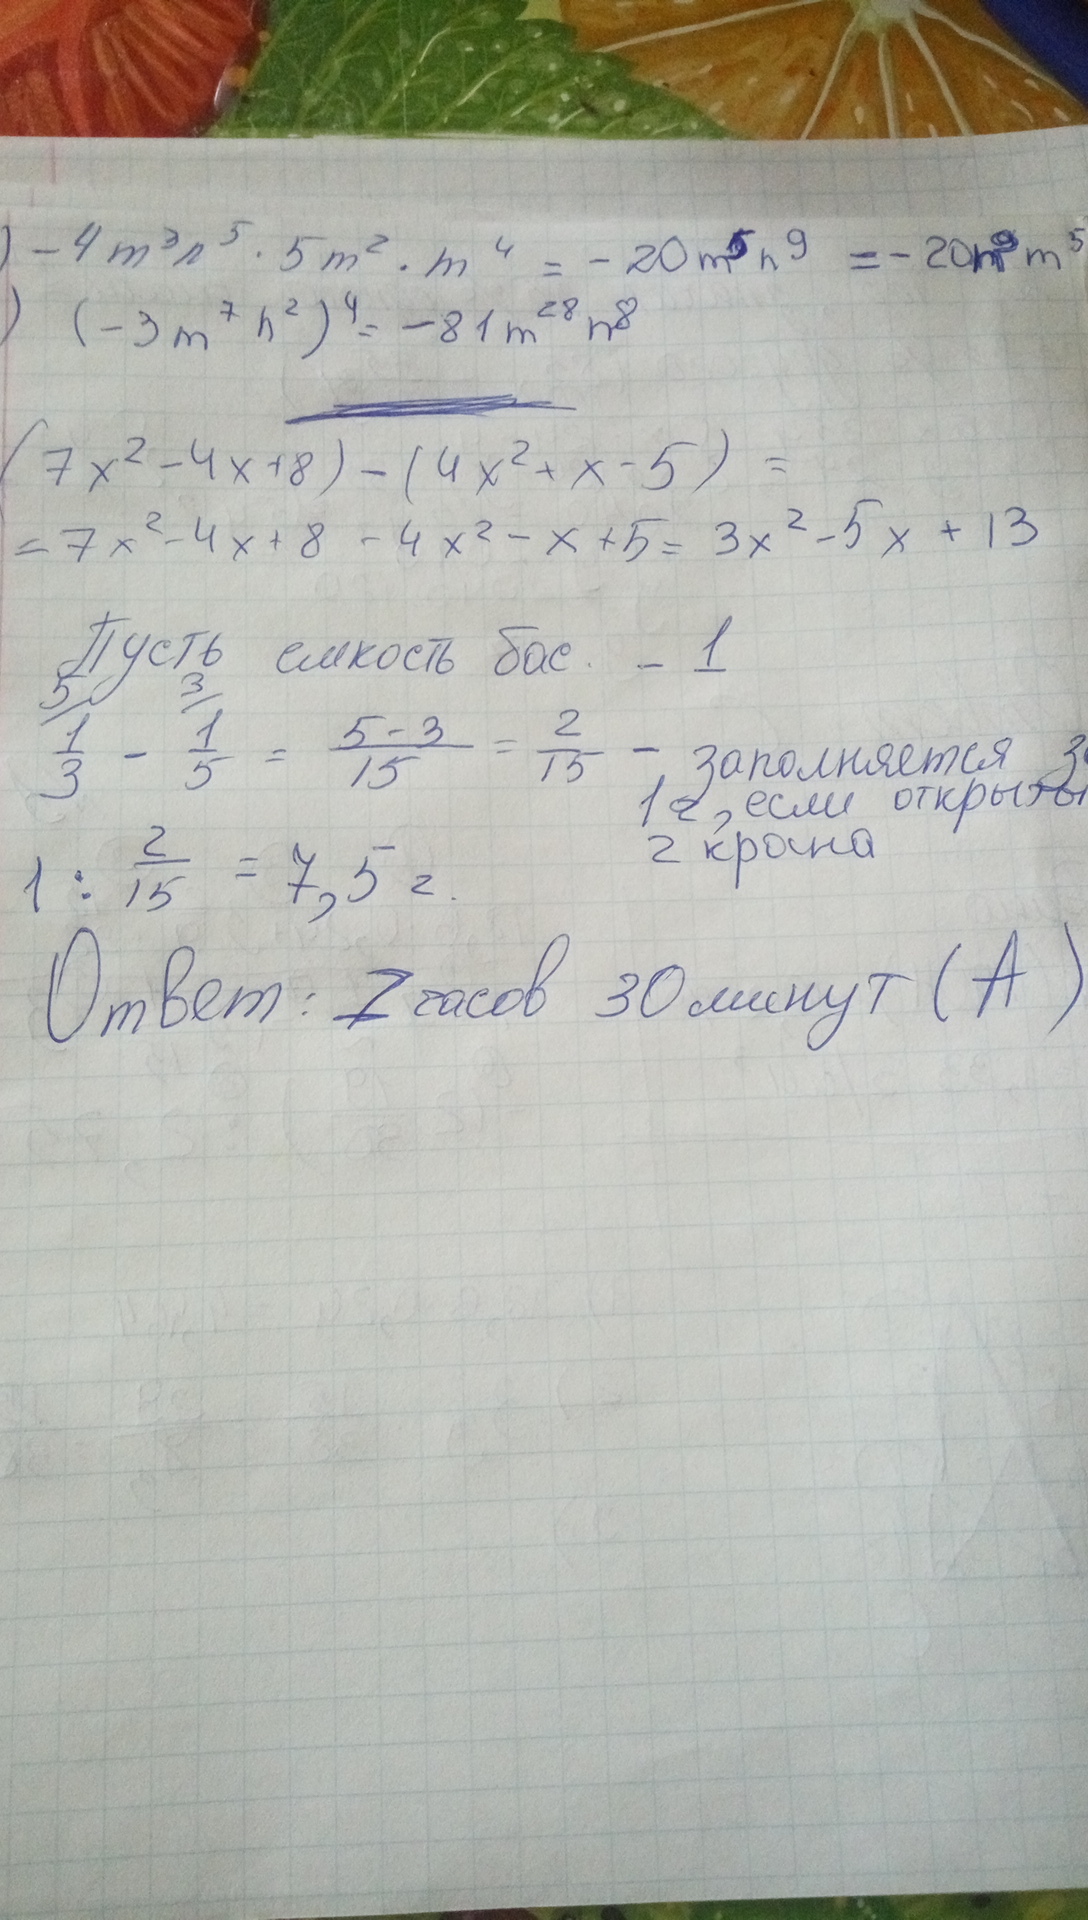 ) -4m³n⁵ · 5m² · m⁴ = -20m⁵n⁹ = -20n⁹m⁵
) (-3m⁷n²)⁴ = -81m²⁸n⁸
(7x² - 4x + 8) - (4x² + x - 5) =
= 7x² - 4x + 8 - 4x² - x + 5 = 3x² - 5x + 13
Пусть емкость бас. - 1
5/ 3/
1/3 - 1/5 = (5-3)/15 = 2/15 - заполняется за
1 г, если открыты
2 крана
1 : 2/15 = 7,5 г.
Ответ: 7 часов 30 минут (А)